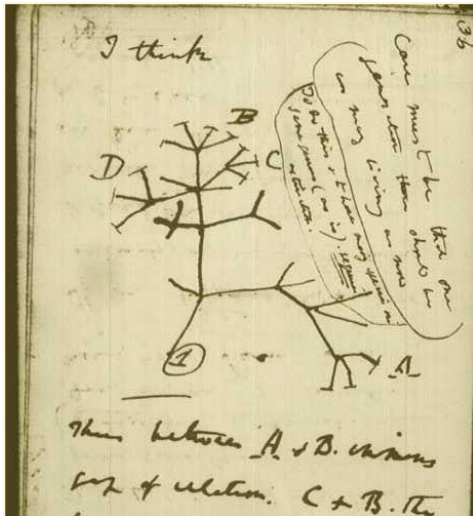 36
I think
B
C
D
A
1
Case must be that one
generation then should be
as many living as now
To do this & to have many species in
same genus (as is). requires
extinction.
Thus between A & B. immense
gap of relation. C & B. the